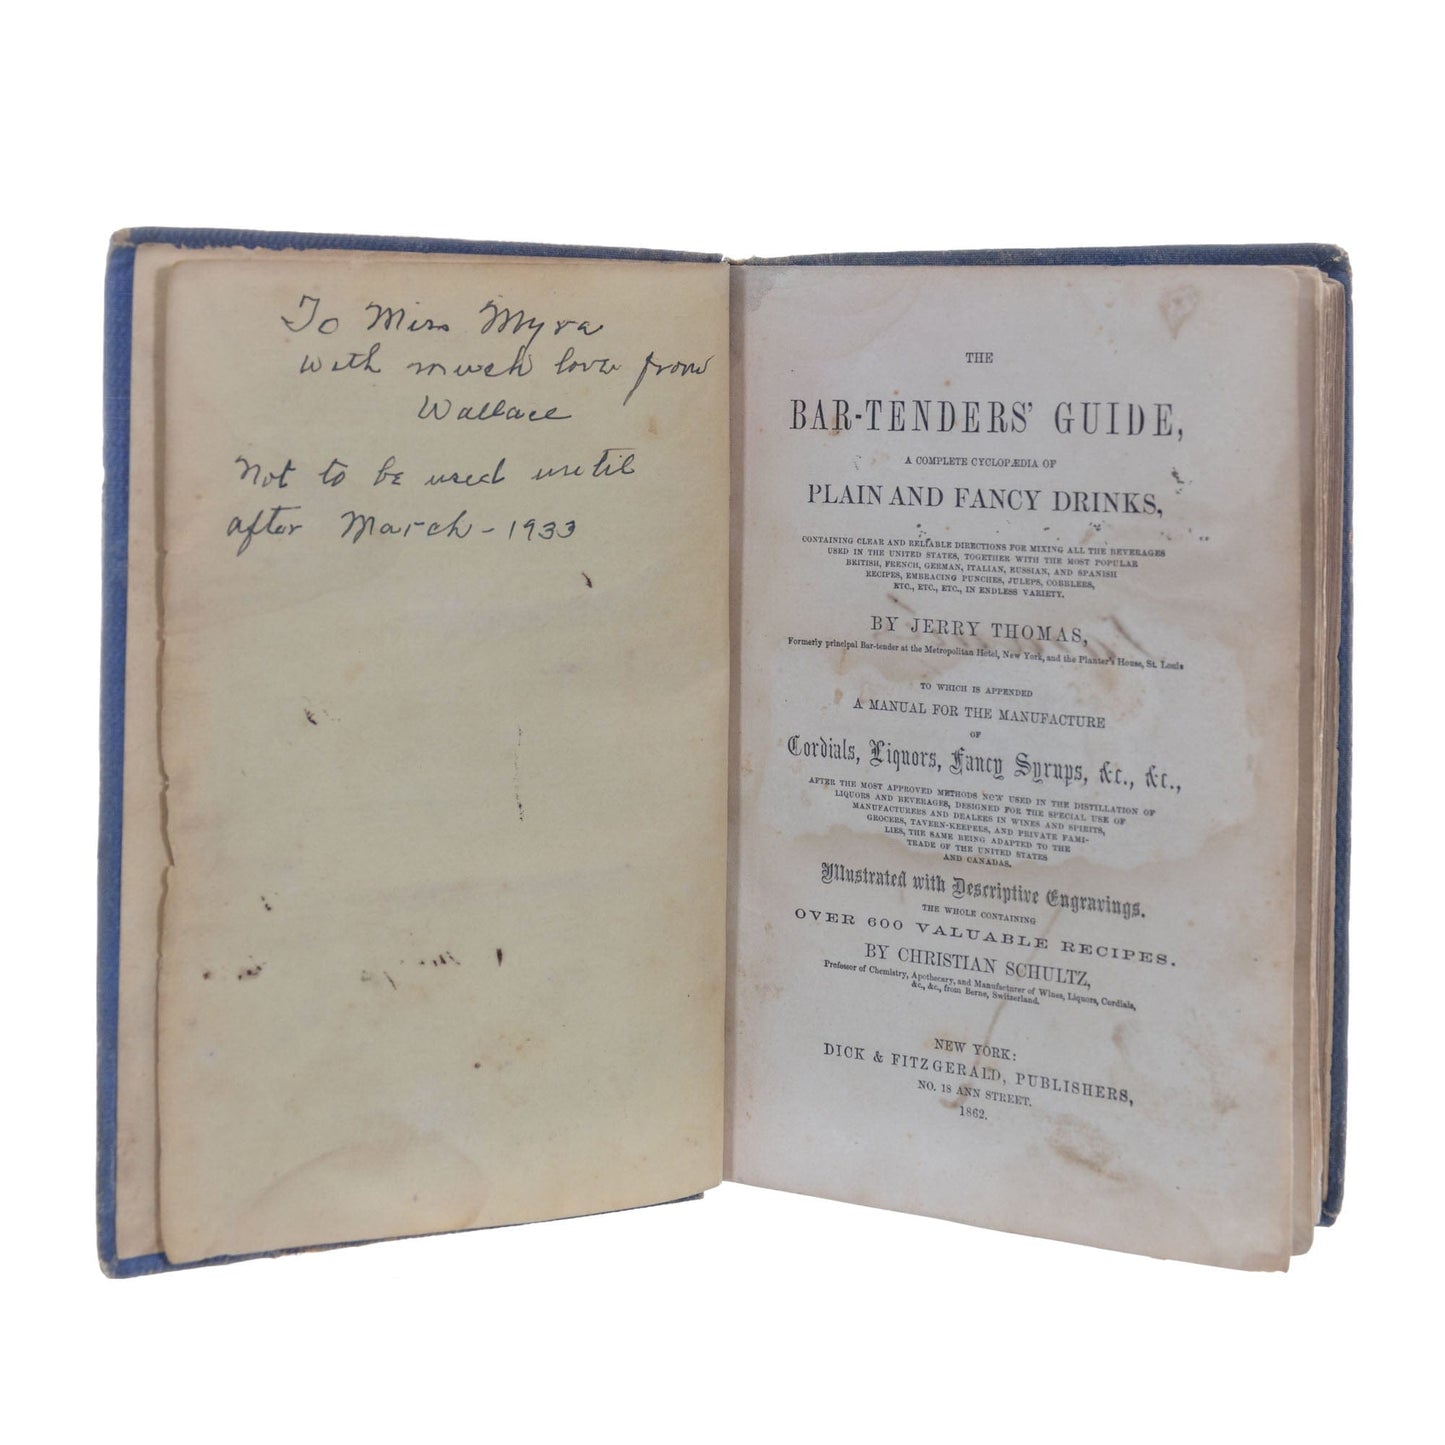 To Miss Myra
with much love from
Wallace
Not to be used until
after March - 1933
THE
BAR-TENDERS' GUIDE,
A COMPLETE CYCLOPÆDIA OF
PLAIN AND FANCY DRINKS,
CONTAINING CLEAR AND RELIABLE DIRECTIONS FOR MIXING ALL THE BEVERAGES
USED IN THE UNITED STATES, TOGETHER WITH THE MOST POPULAR
BRITISH, FRENCH, GERMAN, ITALIAN, RUSSIAN, AND SPANISH
RECIPES, EMBRACING PUNCHES, JULEPS, COBBLERS,
ETC., ETC., ETC., IN ENDLESS VARIETY.
BY JERRY THOMAS,
Formerly principal Bar-tender at the Metropolitan Hotel, New York, and the Planter's House, St. Louis
TO WHICH IS APPENDED
A MANUAL FOR THE MANUFACTURE
OF
Cordials, Liquors, Fancy Syrups, &c., &c.,
AFTER THE MOST APPROVED METHODS NOW USED IN THE DISTILLATION OF
LIQUORS AND BEVERAGES, DESIGNED FOR THE SPECIAL USE OF
MANUFACTURERS AND DEALERS IN WINES AND SPIRITS,
GROCERS, TAVERN-KEEPERS, AND PRIVATE FAMI-
LIES, THE SAME BEING ADAPTED TO THE
TRADE OF THE UNITED STATES
AND CANADAS.
Illustrated with Descriptive Engravings.
THE WHOLE CONTAINING
OVER 600 VALUABLE RECIPES.
BY CHRISTIAN SCHULTZ,
Professor of Chemistry, Apothecary, and Manufacturer of Wines, Liquors, Cordials,
&c., &c., from Berne, Switzerland.
NEW YORK:
DICK & FITZGERALD, PUBLISHERS,
NO. 18 ANN STREET.
1862.